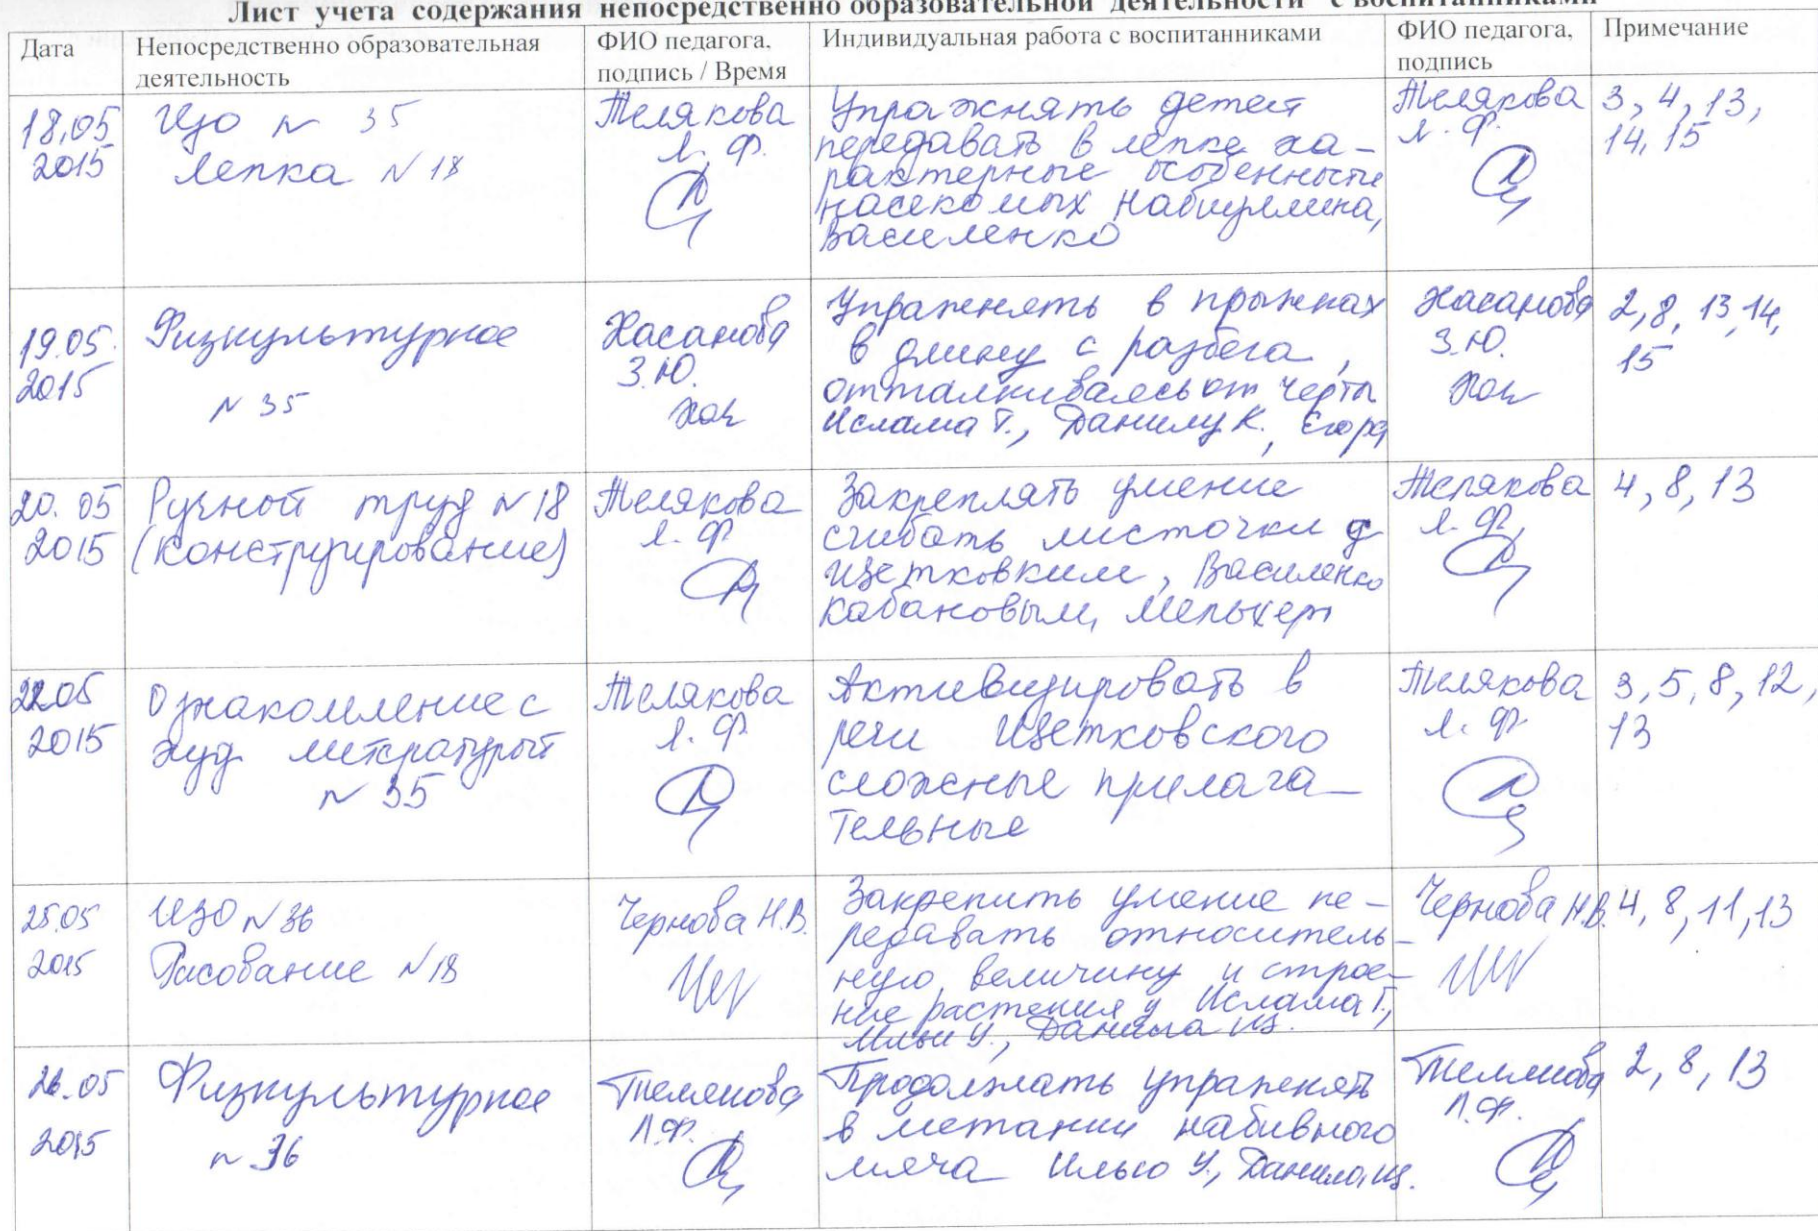 Лист учета содержания непосредственно образовательной деятельности с воспитанниками
Дата
Непосредственно образовательная
деятельность
ФИО педагога,
подпись / Время
Индивидуальная работа с воспитанниками
ФИО педагога,
подпись
Примечание
18.05
2015
Изо № 35
Лепка № 18
Телякова
Л. Ф.
Упражнять детей
передавать в лепке ха-
рактерные особенности
насекомых Набиуллина,
Василенко
Телякова
Л. Ф.
3, 4, 13,
14, 15
19.05.
2015
Физкультурное
№ 35
Хасанова
З.Ю.
Хас
Упражнять в прыжках
в длину с разбега,
отталкиваясь от черты
Ислама Т., Данилу К., Егора
Хасанова
З.Ю.
Хас
2, 8, 13, 14,
15
20.05
2015
Ручной труд № 18
(конструирование)
Телякова
Л. Ф.
Закреплять умение
сгибать листочки
Щетковким, Василенко
Кабановым, Мельхерт
Телякова
Л. Ф.
4, 8, 13
22.05
2015
Ознакомление с
худ литературой
№ 35
Телякова
Л. Ф
Активизировать в
речи Щетковского
сложные прилага-
тельные
Телякова
Л. Ф
3, 5, 8, 12,
13
25.05
2015
ИЗО № 36
Рисование № 18
Чернова Н.В.
Закрепить умение пе-
редавать относитель-
ную величину и строе-
ние растения у Ислама Т.,
Ильи У., Данила Щ.
Чернова Н.В.
4, 8, 11, 13
26.05
2015
Физкультурное
№ 36
Телякова
Л.Ф.
Продолжать упражнять
в метании набивного
мяча Илью У., Данила Щ.
Телякова
Л.Ф.
2, 8, 13